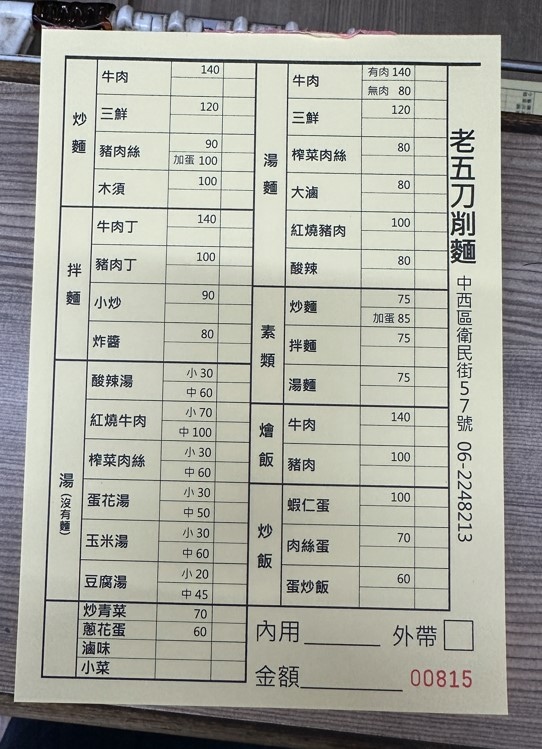 炒麵
牛肉 140
三鮮 120
豬肉絲 90
加蛋 100
木須 100
拌麵
牛肉丁 140
豬肉丁 100
小炒 90
炸醬 80
湯(沒有麵)
酸辣湯 小 30
中 60
紅燒牛肉 小 70
中 100
榨菜肉絲 小 30
中 60
蛋花湯 小 30
中 50
玉米湯 小 30
中 60
豆腐湯 小 20
中 45
炒青菜 70
蔥花蛋 60
滷味
小菜
湯麵
牛肉 有肉 140
無肉 80
三鮮 120
榨菜肉絲 80
大滷 80
紅燒豬肉 100
酸辣 80
素類
炒麵 75
加蛋 85
拌麵 75
湯麵 75
燴飯
牛肉 140
豬肉 100
炒飯
蝦仁蛋 100
肉絲蛋 70
蛋炒飯 60
內用 外帶
金額 00815
老五刀削麵 中西區衛民街57號 06-2248213